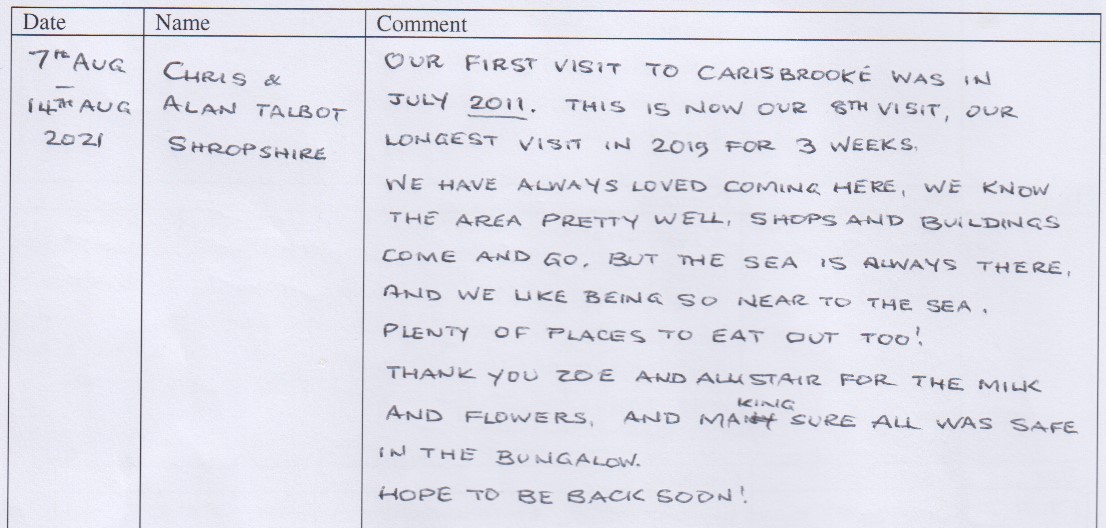 Date Name Comment
7TH AUG
–
14TH AUG
2021
CHRIS &
ALAN TALBOT
SHROPSHIRE
OUR FIRST VISIT TO CARISBROOKE WAS IN
JULY 2011. THIS IS NOW OUR 8TH VISIT, OUR
LONGEST VISIT IN 2019 FOR 3 WEEKS.
WE HAVE ALWAYS LOVED COMING HERE, WE KNOW
THE AREA PRETTY WELL, SHOPS AND BUILDINGS
COME AND GO, BUT THE SEA IS ALWAYS THERE,
AND WE LIKE BEING SO NEAR TO THE SEA.
PLENTY OF PLACES TO EAT OUT TOO!
THANK YOU ZOE AND ALISTAIR FOR THE MILK
AND FLOWERS, AND MAKING SURE ALL WAS SAFE
IN THE BUNGALOW.
HOPE TO BE BACK SOON!